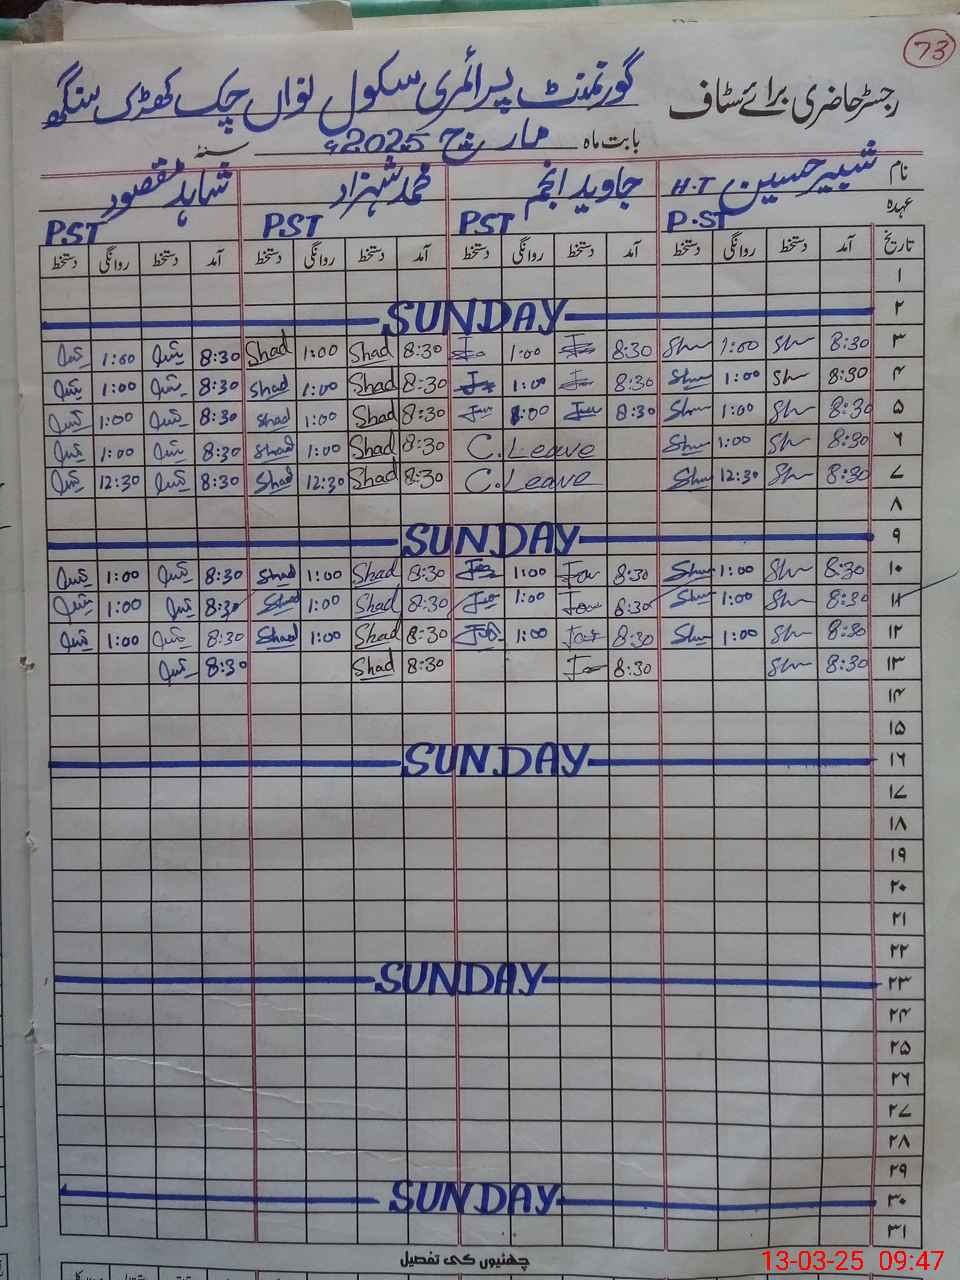 73
رجسٹر حاضری برائے سٹاف گورنمنٹ پرائمری سکول نواں چک کھڑک سنگھ
بابت ماہ مارچ 2025ء سنہ
نام شبیر حسین H.T جاوید انجم محمد شہزاد شاہد مقصود
عہدہ P.ST PST PST PST
تاریخ آمد دستخط روانگی دستخط آمد دستخط روانگی دستخط آمد دستخط روانگی دستخط آمد دستخط روانگی دستخط
۱
۲ SUNDAY
۳ 8:30 1:00 8:30 1:00 8:30 Shad 1:00 Shad 8:30 1:00
۴ 8:30 1:00 8:30 1:00 8:30 Shad 1:00 Shad 8:30 1:00
۵ 8:30 1:00 8:30 1:00 8:30 Shad 1:00 Shad 8:30 1:00
۶ 8:30 1:00 C.Leave 8:30 Shad 1:00 Shad 8:30 1:00
۷ 8:30 12:30 C.Leave 8:30 Shad 12:30 Shad 8:30 12:30
۸
۹ SUNDAY
۱۰ 8:30 1:00 8:30 1:00 8:30 Shad 1:00 Shad 8:30 1:00
۱۱ 8:30 1:00 8:30 1:00 8:30 Shad 1:00 Shad 8:30 1:00
۱۲ 8:30 1:00 8:30 1:00 8:30 Shad 1:00 Shad 8:30 1:00
۱۳ 8:30 8:30 8:30 Shad 8:30
۱۴
۱۵
۱۶ SUNDAY
۱۷
۱۸
۱۹
۲۰
۲۱
۲۲
۲۳ SUNDAY
۲۴
۲۵
۲۶
۲۷
۲۸
۲۹
۳۰ SUNDAY
۳۱
چھٹیوں کی تفصیل
13-03-25 09:47